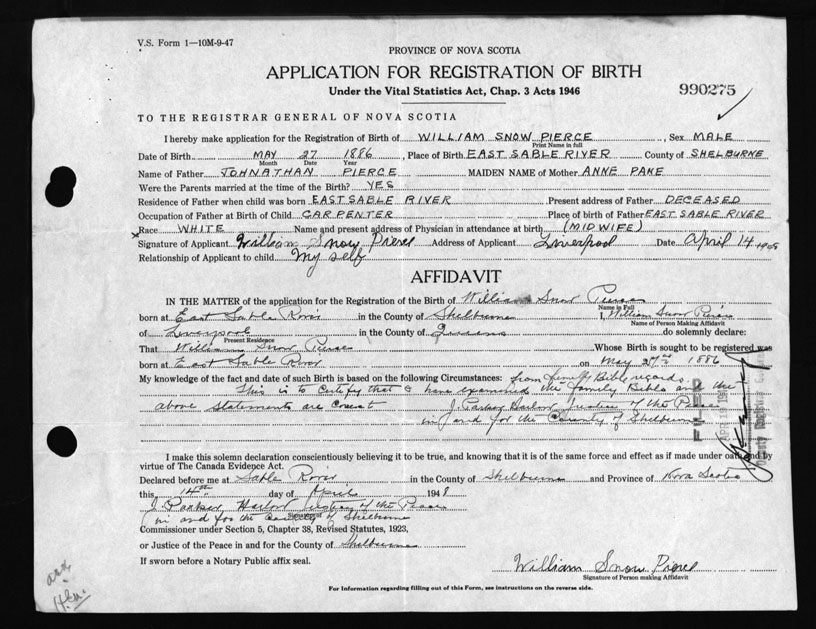 V.S. Form 1—10M-9-47
PROVINCE OF NOVA SCOTIA
APPLICATION FOR REGISTRATION OF BIRTH
Under the Vital Statistics Act, Chap. 3 Acts 1946
990275
TO THE REGISTRAR GENERAL OF NOVA SCOTIA
I hereby make application for the Registration of Birth of WILLIAM SNOW PIERCE, Sex MALE
Print Name in full
Date of Birth MAY 27 1886, Place of Birth EAST SABLE RIVER County of SHELBURNE
Month Date Year
Name of Father JOHNATHAN PIERCE MAIDEN NAME of Mother ANNE PAKE
Were the Parents married at the time of the Birth? YES
Residence of Father when child was born EAST SABLE RIVER Present address of Father DECEASED
Occupation of Father at Birth of Child CARPENTER Place of birth of Father EAST SABLE RIVER
x Race WHITE Name and present address of Physician in attendance at birth (MIDWIFE)
Signature of Applicant William Snow Pierce Address of Applicant Liverpool Date April 14
Relationship of Applicant to child My self
AFFIDAVIT
IN THE MATTER of the application for the Registration of the Birth of William Snow Pierce
Name in Full
born at East Sable River in the County of Shelburne I, William Snow Pierce
Name of Person Making Affidavit
of Liverpool in the County of Queens do solemnly declare:
Present Residence
That William Snow Pierce Whose Birth is sought to be registered was
born at East Sable River on May 27th 1886
My knowledge of the fact and date of such Birth is based on the following Circumstances: from family Bible records
This is to Certify that I have examined the family Bible and the
above statements are correct J. Parker Harlow Justice of the Peace
in and for the County of Shelburne
FILED
APR 19
I make this solemn declaration conscientiously believing it to be true, and knowing that it is of the same force and effect as if made under oath and by
virtue of The Canada Evidence Act.
Declared before me at Sable River in the County of Shelburne and Province of Nova Scotia
this 14th day of April 1948
J. Parker Harlow Justice of the Peace
Signature of
in and for the County of Shelburne
Commissioner under Section 5, Chapter 38, Revised Statutes, 1923,
or Justice of the Peace in and for the County of Shelburne
If sworn before a Notary Public affix seal.
William Snow Pierce
Signature of Person making Affidavit
For Information regarding filling out of this Form, see instructions on the reverse side.